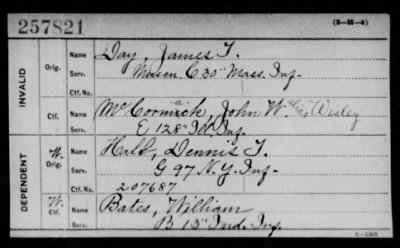 257821
(3-H-4)
INVALID
Orig.
Name Day, James T.
Serv. Musn. C 30" Mass. Inf-
Ctf. No.
Ctf.
Name McCormick, John W. Wesley
Serv. E 128" Inf.
DEPENDENT
W. Orig.
Name Hall, Dennis T.
Serv. G 97 N.Y. Inf-
Ctf. No. 207687
W. Ctf.
Name Bates, William
Serv. B 15" Ind. Inf.